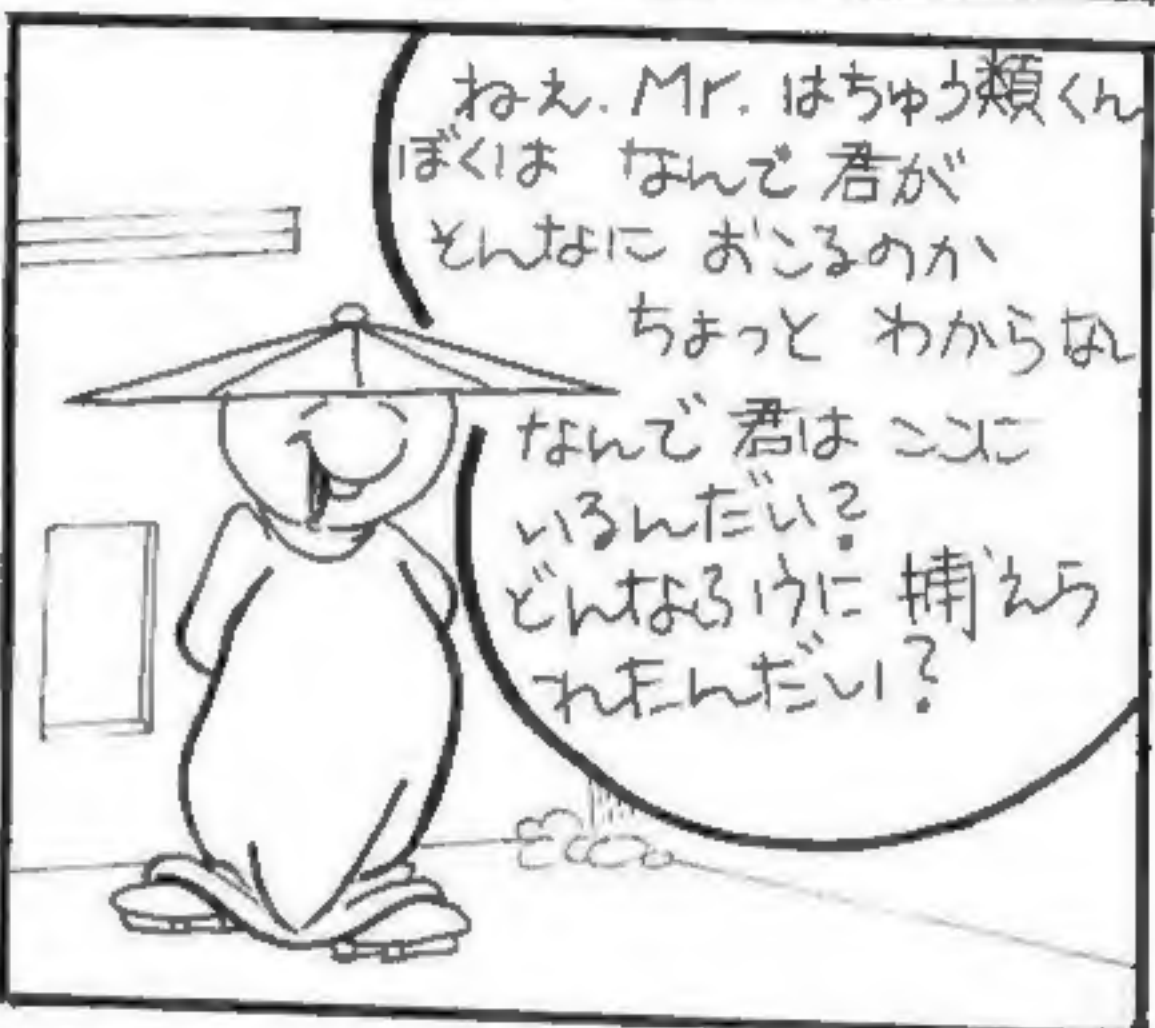 ねえ. Mr. はちゅう類くん
ぼくは なんで 君が
そんなに おこるのか
ちょっと わからない
なんで 君は ここに
いるんだい?
どんなふうに 捕えら
れたんだい?